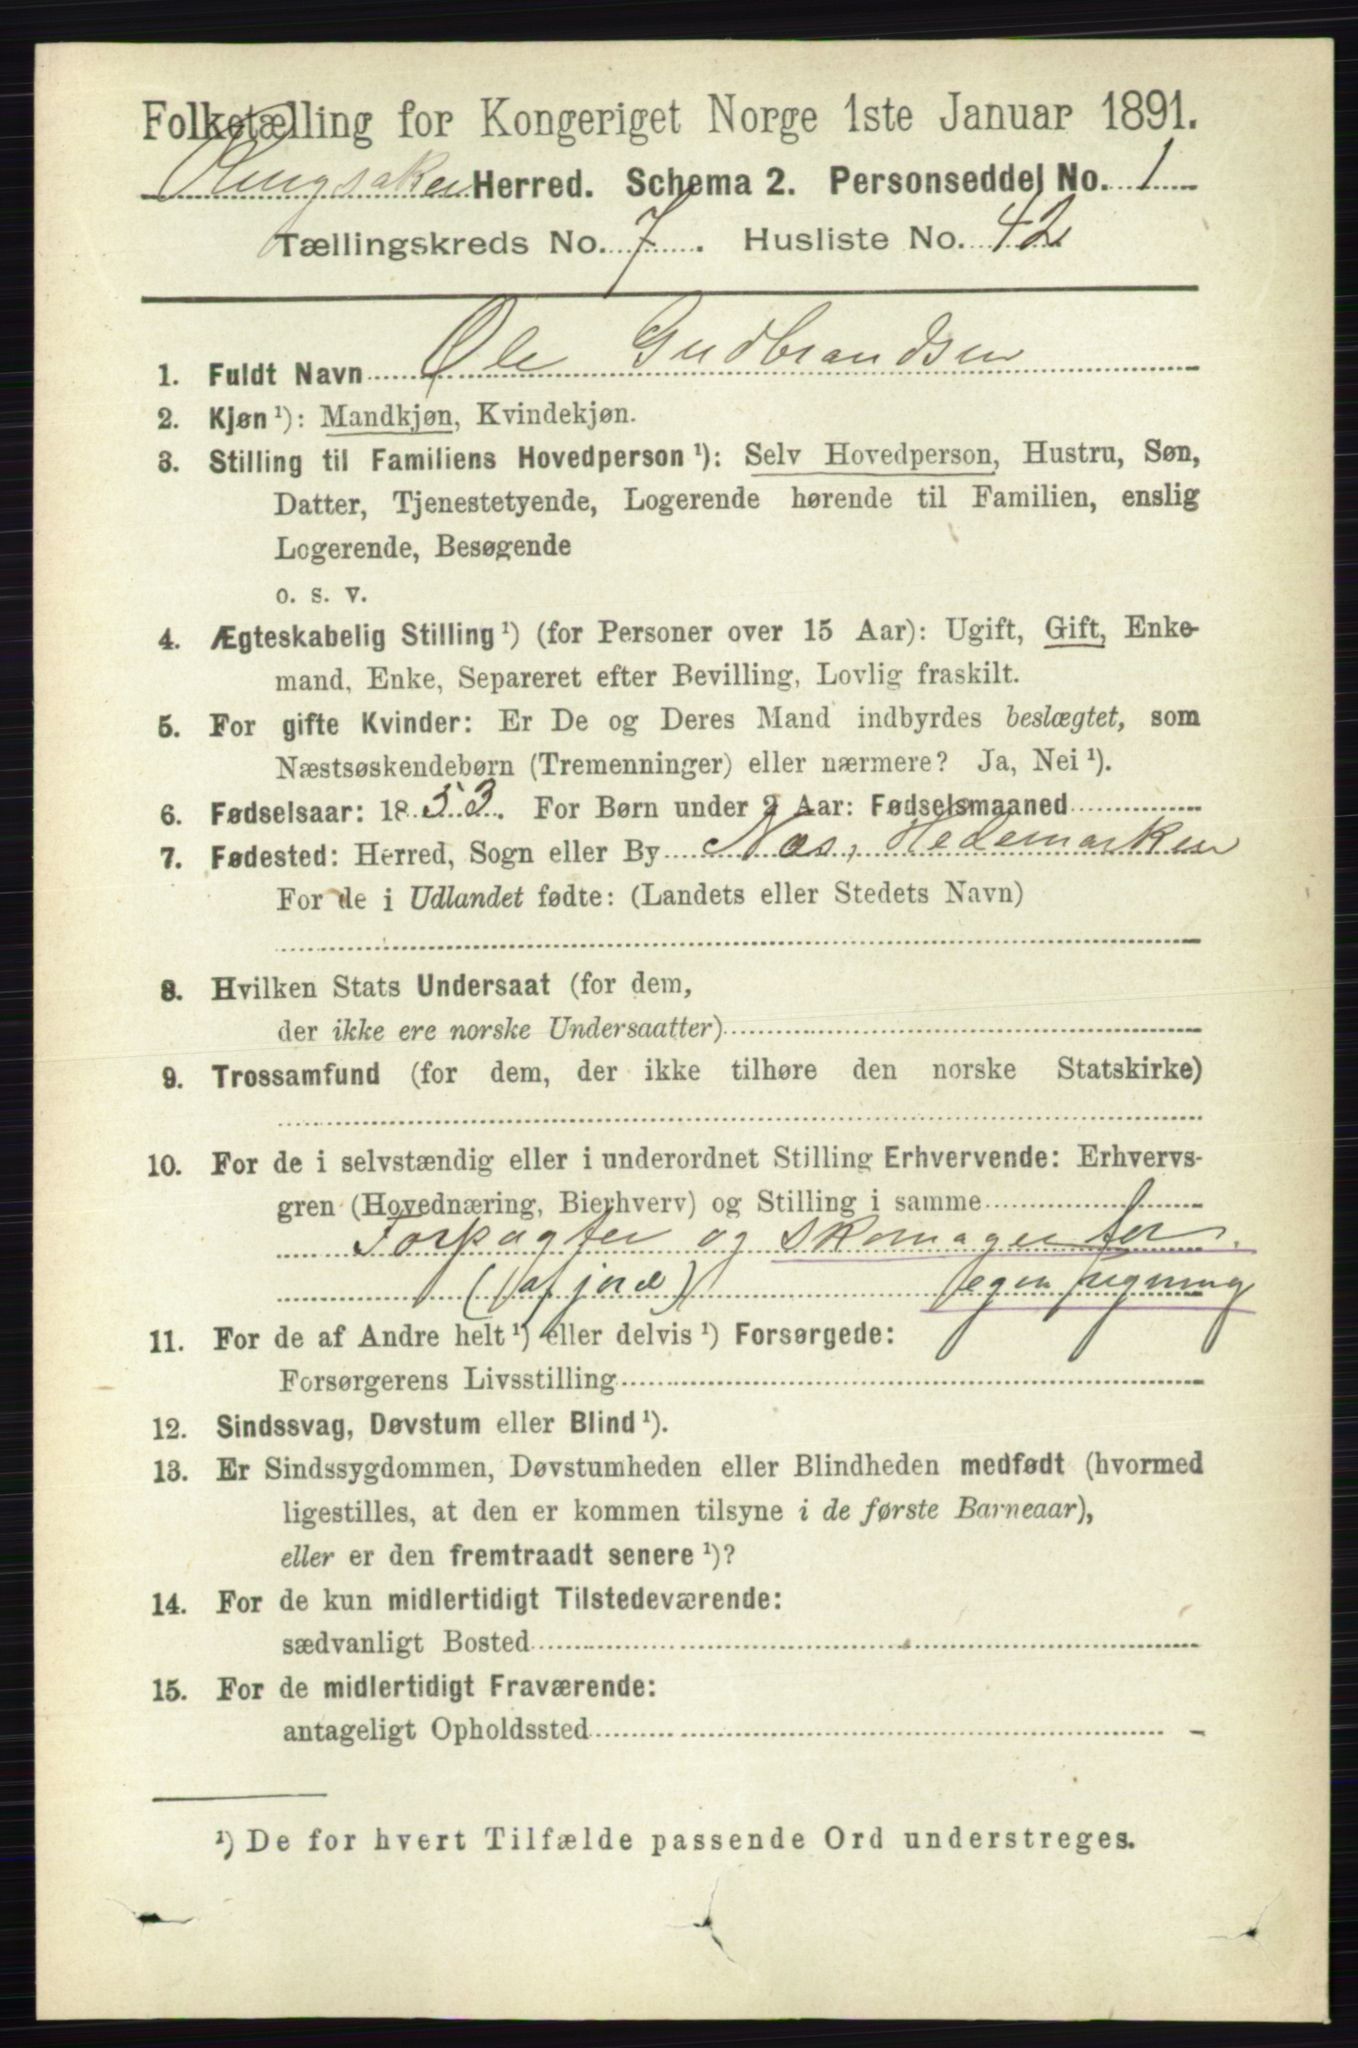 Folketælling for Kongeriget Norge 1ste Januar 1891.
Ringsaker Herred. Schema 2. Personseddel No. 1
Tællingskreds No. 7. Husliste No. 42
1. Fuldt Navn Ole Gudbrandsen
2. Kjøn ¹): Mandkjøn, Kvindekjøn.
3. Stilling til Familiens Hovedperson ¹): Selv Hovedperson, Hustru, Søn,
Datter, Tjenestetyende, Logerende hørende til Familien, enslig
Logerende, Besøgende
o. s. v.
4. Ægteskabelig Stilling ¹) (for Personer over 15 Aar): Ugift, Gift, Enke-
mand, Enke, Separeret efter Bevilling, Lovlig fraskilt.
5. For gifte Kvinder: Er De og Deres Mand indbyrdes beslægtet, som
Næstsøskendebørn (Tremenninger) eller nærmere? Ja, Nei ¹).
6. Fødselsaar: 1853. For Børn under 2 Aar: Fødselsmaaned
7. Fødested: Herred, Sogn eller By Næs, Hedemarken
For de i Udlandet fødte: (Landets eller Stedets Navn)
8. Hvilken Stats Undersaat (for dem,
der ikke ere norske Undersaatter)
9. Trossamfund (for dem, der ikke tilhøre den norske Statskirke)
10. For de i selvstændig eller i underordnet Stilling Erhvervende: Erhvervs-
gren (Hovednæring, Bierhverv) og Stilling i samme
Forpagter og skomager for
(af jord) egen regning
11. For de af Andre helt ¹) eller delvis ¹) Forsørgede:
Forsørgerens Livsstilling
12. Sindssvag, Døvstum eller Blind ¹).
13. Er Sindssygdommen, Døvstumheden eller Blindheden medfødt (hvormed
ligestilles, at den er kommen tilsyne i de første Barneaar),
eller er den fremtraadt senere ¹)?
14. For de kun midlertidigt Tilstedeværende:
sædvanligt Bosted
15. For de midlertidigt Fraværende:
antageligt Opholdssted
¹) De for hvert Tilfælde passende Ord understreges.